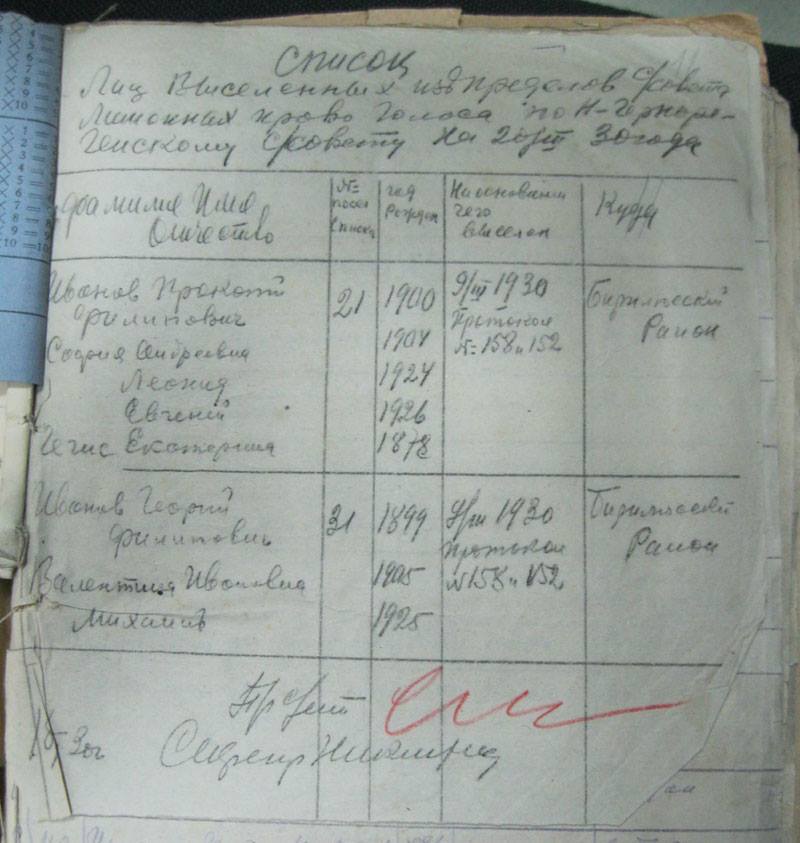 Список
Лиц Виселенных из Пределов С/совета
Лишонных право голоса по Н-Черноре-
Генскому С/совету на 20/III 30 года
Фамилия Имя Отчество
№ по сел Списка
год Рожден
На основании чего виселен
Куда
Иванов Прокопий Филипович 21 1900 9/III 1930 Бирилюсский
Протокол Район
София Андреевна 1904 № 158 и 152
Леонид 1924
Евгений 1926
Екатерина 1878
Иванов Георгий 31 1899 9/III 1930 Бирилюсский
Филипович Протокол Район
Валентина Ивановна 1905 № 158 и 152
Михаил 1925
Пред
Секрет